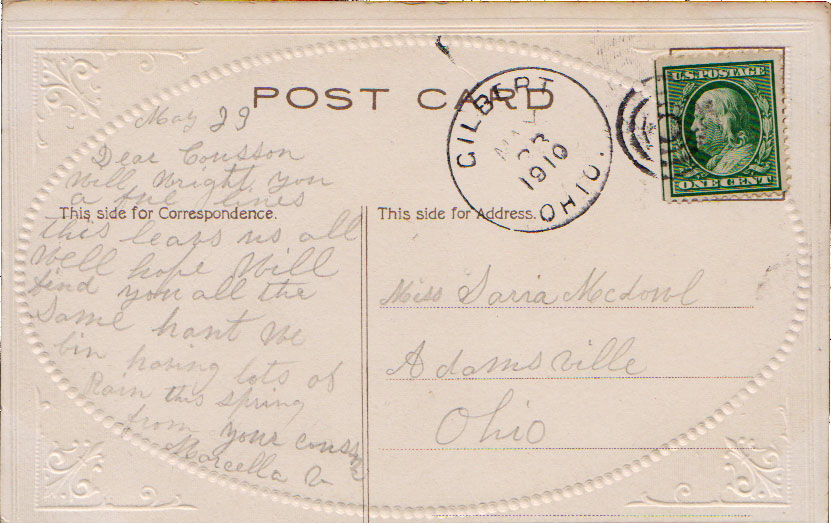 POST CARD
GILBERT
MAY
23
1910
OHIO.
U.S. POSTAGE
ONE CENT
May 23
Dear Cousson
Will Wright you
a few lines
This side for Correspondence.
this leavs us all
Well hope Will
find you all the
Same hant We
bin having lots of
Rain this spring
from your coussn
Marcella V
This side for Address.
Miss Saria Mcdowl
Adamsville
Ohio